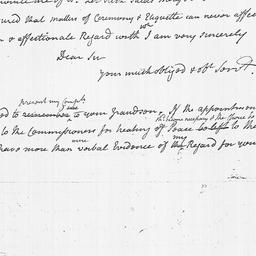 ured that matters of Ceremony & Etiquette can never affec
& affectionate Regard with wch I am very sincerely
Dear Sir
your much obliged & obt Servt.
present my Compts
ed to remember to your grandson. If the appointmen
to the Commissioners for healing of Peace be left to the
have more than verbal Evidence of my Regard for you